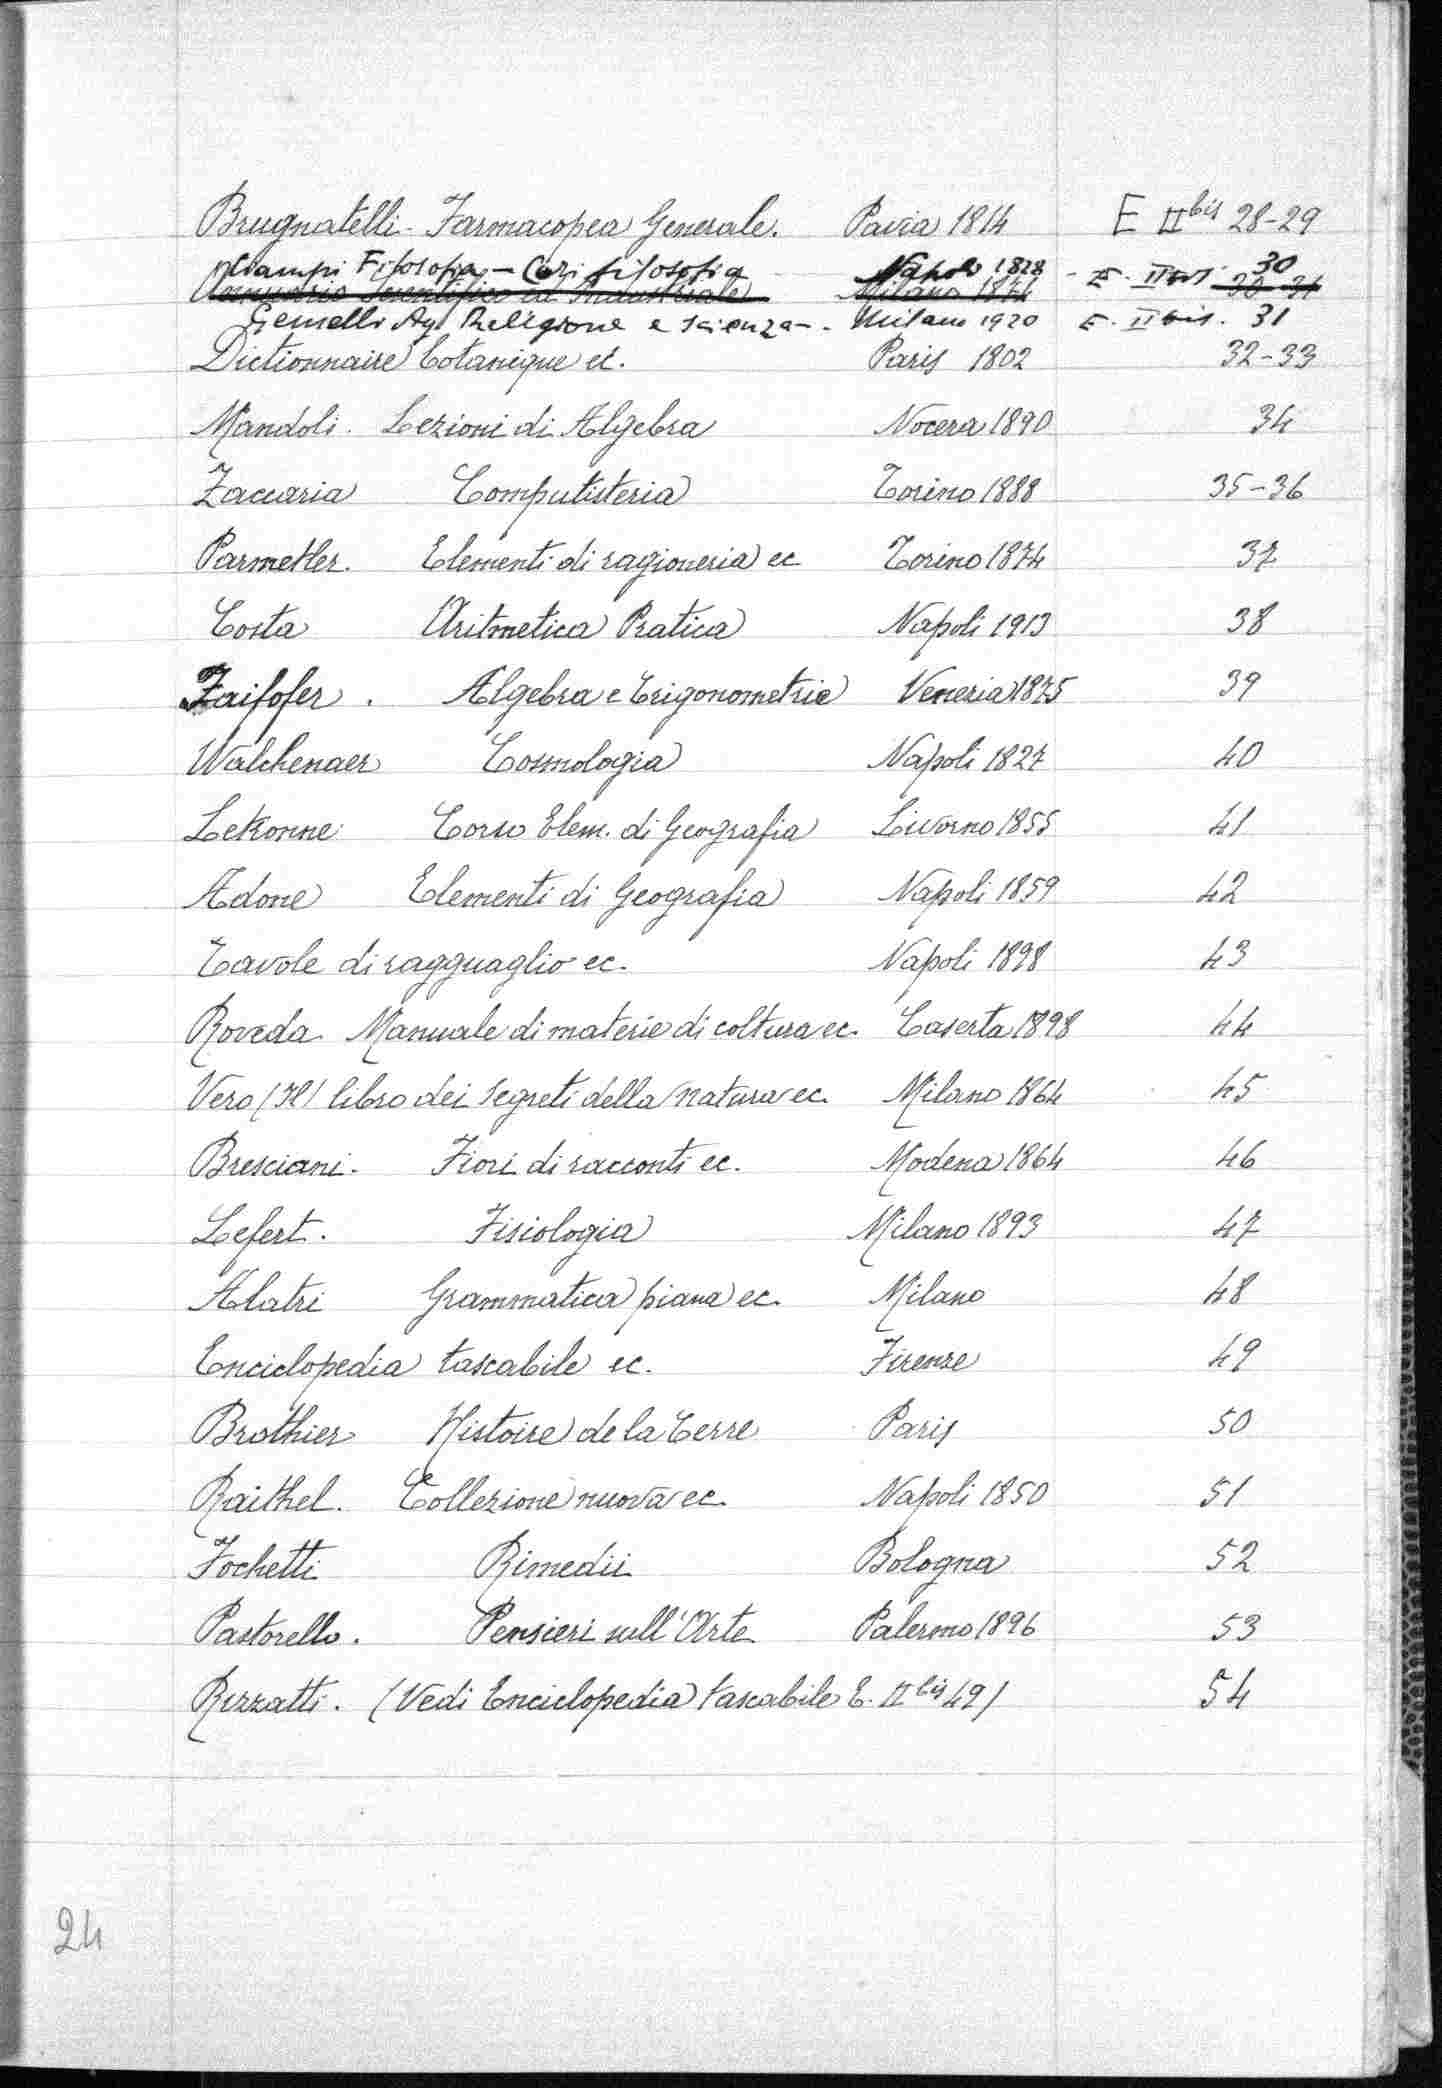 Brugnatelli - Farmacopea Generale. Pavia 1814 E II bis 28-29
Ciampi Filosofia - Corsi filosofia Napoli 1828 - E. II bis 30
Annuario Scientifico ed Industriale Milano 1874 30-31
Gemelli Ag. Religione e scienza - Milano 1920 E. II bis. 31
Dictionnaire botanique ec. Paris 1802 32-33
Mandoli. Lezioni di Algebra Nocera 1890 34
Zaccaria Computisteria Torino 1888 35-36
Parmetler. Elementi di ragioneria ec Torino 1874 37
Costa Aritmetica Pratica Napoli 1913 38
Faifofer. Algebra e Trigonometrie Venezia 1875 39
Walchenaer Cosmologia Napoli 1827 40
Letronne Corso Elem. di Geografia Livorno 1855 41
Adone Elementi di Geografia Napoli 1859 42
Tavole di ragguaglio ec. Napoli 1898 43
Roveda Manuale di materie di coltura ec. Caserta 1898 44
Vero (Il) libro dei segreti della natura ec. Milano 1864 45
Bresciani. Fiori di racconti ec. Modena 1864 46
Lefert. Fisiologia Milano 1893 47
Alatri Grammatica piana ec. Milano 48
Enciclopedia tascabile ec. Firenze 49
Brothier Histoire de la Terre Paris 50
Raithel. Collezione nuova ec. Napoli 1850 51
Fochetti Rimedii Bologna 52
Pastorello. Pensieri sull'Arte Palermo 1896 53
Rizzatti. (Vedi Enciclopedia tascabile E. II bis 49) 54
24